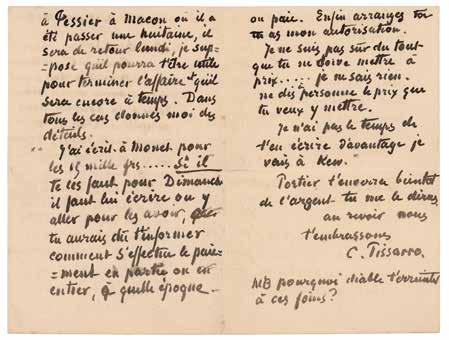 à Tessier à Macon où il a
été passer une huitaine, il
sera de retour lundi, je sup-
=pose qu'il pourra t'être utile
pour terminer l'affaire & qu'il
sera encore à temps. Dans
tous les cas donnes moi des
détails.
J'ai écrit à Monet pour
les 15 mille frs..... Si il
te les faut pour Dimanche
il faut lui écrire ou y
aller pour les avoir,
tu aurais du t'informer
comment s'effectue le paie-
=ment en partie ou en
entier, à quelle époque.
on paie. Enfin arranges toi
tu as mon autorisation.
Je ne suis pas sûr du tout
que tu ne doive mettre à
prix..... je ne sais rien.
ne dis à personne le prix que
tu veux y mettre.
Je n'ai pas le temps de
t'en écrire davantage je
vais à Kew.
Portier t'enverra bientôt
de l'argent tu me le diras,
au revoir nous
t'embrassons
C. Pissarro.
NB pourquoi diable
à ces foins?